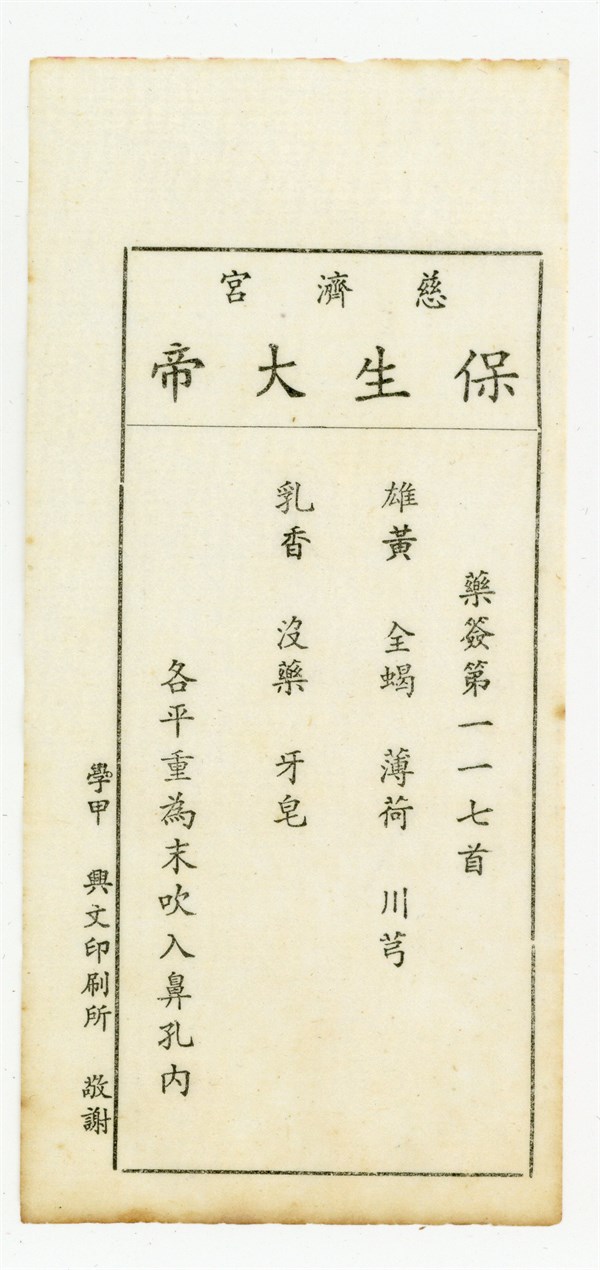 慈濟宮
保生大帝
藥簽第一一七首
雄黃 全蝎 薄荷 川芎
乳香 沒藥 牙皂
各平重為末吹入鼻孔內
學甲 興文印刷所 敬謝